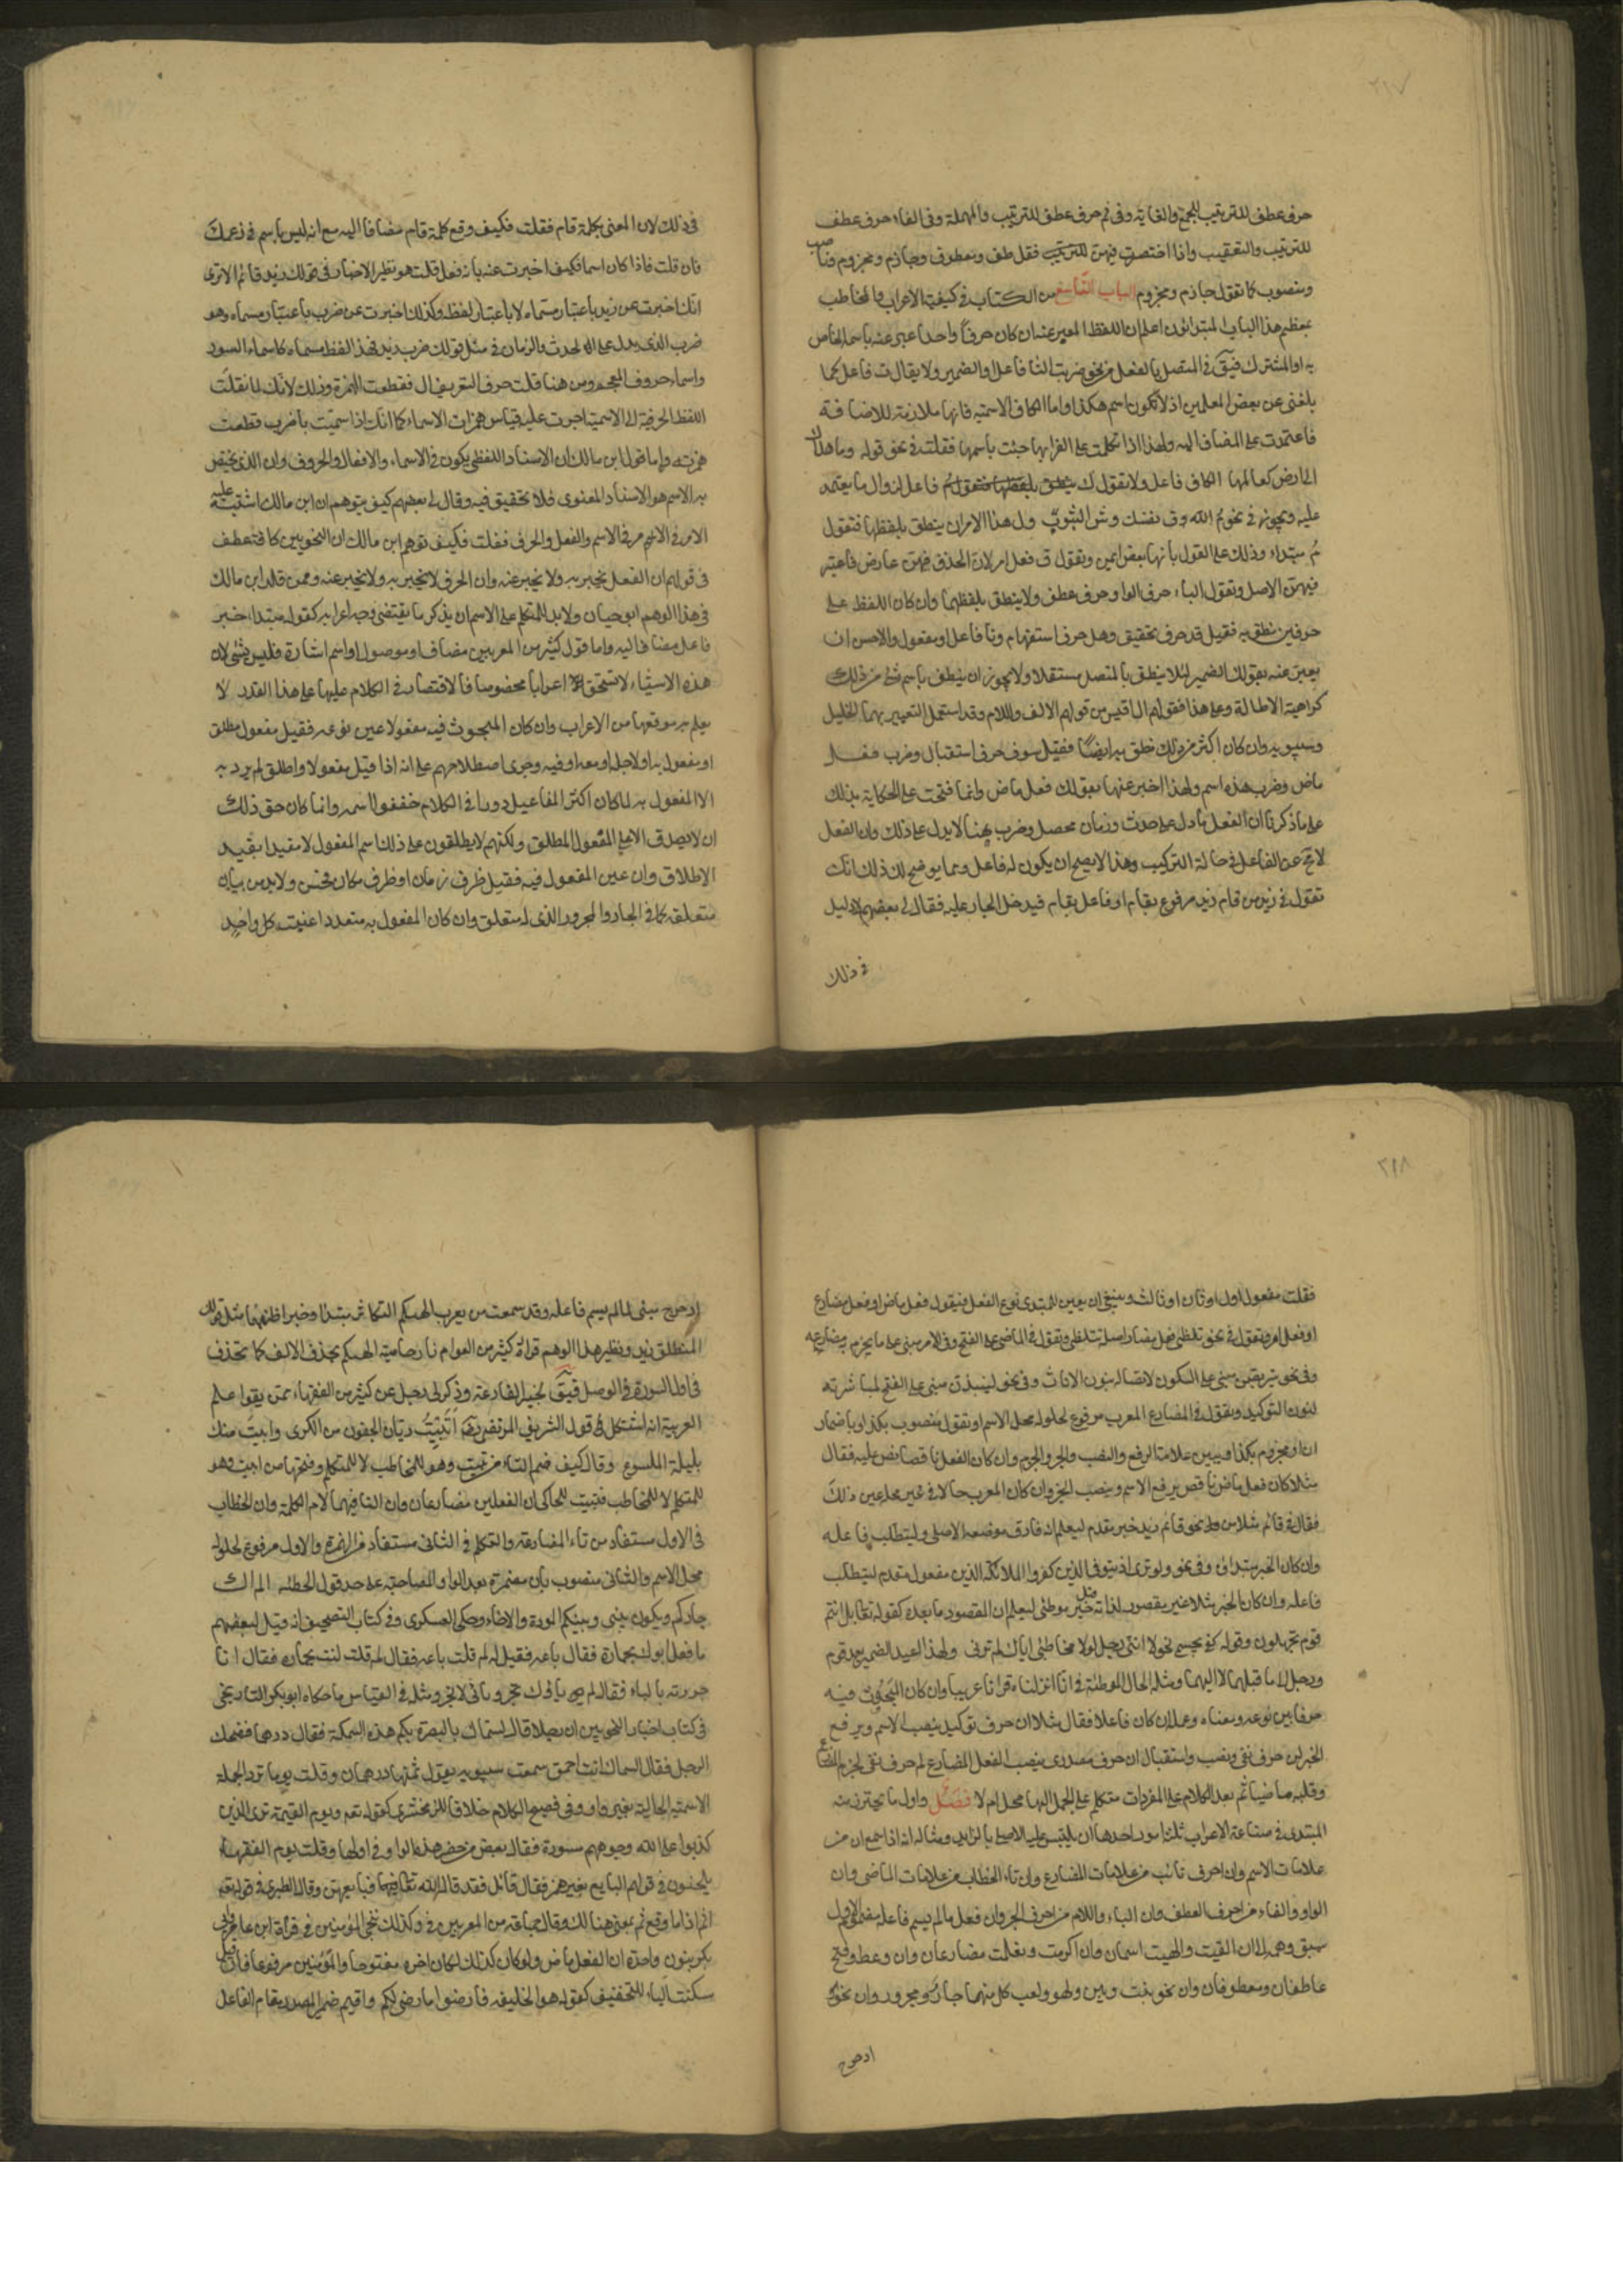 ٢١٧
حرف عطف للترتيب للجمع والغاية وفى ثم حرف عطف للترتيب والمهلة وفى الفاء حرف عطف
للترتيب والتعقيب واذا اختصرت فيهن فقل عاطف ومعطوف وجازم ومجزوم وناصب
ومنصوب كما تقول جازم ومجزوم الباب التاسع من الكتاب فى كيفية الاعراب والمخاطب
بمعظم هذا الباب المبتدئون اعلم ان اللفظ المعبر عنه ان كان حرفا واحدا عبر عنه باسمه الخاص
به او المشترك فيق فى المتصل بالفعل من نحو ضربت التا فاعل او الضمير ولا يقال ت فاعل كما
بلغنى عن بعض المعلمين اذ لا يكون اسم هكذا واما الكاف الاسمية فانها ملازمة للاضافة
فاعتمدت على المضاف اليه ولهذا اذا تكلمت على اعرابها جئت باسمها فقلت فى نحو قوله وما هداك
الى ارض كعالمها الكاف فاعل ولا تقول ك فاعل لزوال ما يعتمد
عليه ويجوز فى نحو م الله وق نفسك وش الثوب ول هذا الامر ان ينطق بلفظها فتقول
م مبتداء وذلك على القول بانها بعض ايمن وتقول ق فعل امر لان الحذف فيهن عارض فاعتبر
فيهن الاصل وتقول الباء حرف جر والواو حرف عطف ولا ينطق بلفظهما وان كان اللفظ على
حرفين نطق به فقيل قد حرف تحقيق وهل حرف استفهام ونا فاعل او مفعول والاحسن ان
يعبر عنه بقولك الضمير لئلا ينطق بالمتصل مستقلا ولا يجوز ان ينطق باسم شئ من ذلك
كراهية الاطالة وعلى هذا فقولهم ال اقيس من قولهم الالف واللام وقد استعمل التعبير بهما الخليل
وسيبويه وان كان اكثر من ذلك نطق به ايضا فقيل سوف حرف استقبال وضرب فعل
ماض وضرب هذه اسم ولهذا اخبر عنها بقولك فعل ماض وانما فتحت على الحكاية يدلك
على ما ذكرنا ان الفعل ما دل على حدث وزمان محصل وضرب هنا لا يدل على ذلك وان الفعل
لا يخ عن الفاعل فى حالة التركيب وهذا لا يصح ان يكون له فاعل ومما يوضح لك ذلك انك
تقول فى زيد من قام زيد مرفوع بقام او فاعل بقام فيدخل الجار عليه فقال لى بعضهم لا دليل
فى ذلك
فى ذلك لان المعنى بكلمة قام فقلت فكيف وقع كلمة قام مضافا اليه مع انه ليس باسم فى زعمك
فان قلت فاذا كان اسما فكيف اخبرت عنه بانه فعل قلت هو نظير الاخبار فى قولك زيد قائم الا ترى
انك اخبرت عن زيد باعتبار مسماه لا باعتبار لفظه وكذلك اخبرت عن ضرب باعتبار مسماه وهو
ضرب الذى يدل على الحدث والزمان فى مثل قولك ضرب زيد فهذا لفظ مسماه كاسماء السور
واسماء حروف المعجم ومن هنا قلت حرف التعريف ال فقطعت الهمزة وذلك لانك لما نقلت
اللفظ الحرفية الى الاسمية اجريت عليه قياس همزات الاسماء كما انك اذا سميت باضرب قطعت
همزته واما قول ابن مالك ان الاسناد اللفظى يكون فى الاسماء والافعال والحروف وان الذى يختص
به الاسم هو الاسناد المعنوى فلا تحقيق فيه وقال لى بعضهم كيف يتوهم ان ابن مالك اشتبه عليه
الامر فى الاسم والفعل والحرف فقلت فكيف توهم ابن مالك ان النحويين كافة غلطوا
فى قولهم ان الفعل يخبر به ولا يخبر عنه وان الحرف لا يخبر به ولا يخبر عنه وممن قلد ابن مالك
فى هذا الوهم ابو حيان ولا بد للمتكلم على الاسم ان يذكر ما يقتضى وجه اعرابه كقوله مبتداء خبر
فاعل مضاف اليه واما قول كثير من المعربين مضاف او موصول او اسم اشارة فليس بشئ لان
هذه الاشياء لا تستحق اعرابا مخصوصا فالاقتصار فى الكلام عليها على هذا القدر لا
يعلم به موقعها من الاعراب وان كان المبحوث فيه مفعولا عين نوعه فقيل مفعول مطلق
او مفعول به او لاجله او معه او فيه وجرى اصطلاحهم على انه اذا قيل مفعولا واطلق لم يرد به
الا المفعول به لما كان اكثر المفاعيل دورا فى الكلام خففوا اسمه وانما كان حق ذلك
ان لا يصدق الا على المفعول المطلق ولكنهم لا يطلقون على ذلك اسم المفعول لا مقيدا بقيد
الاطلاق وان عين المفعول فيه فقيل ظرف زمان او ظرف مكان فحسن ولا بد من بيان
متعلقه كما فى الجار والمجرور الذى له متعلق وان كان المفعول به متعددا عينت كل واحد
٢١٨
فقلت مفعول اول او ثان او ثالث وينبغى ان يعين للمبتدى نوع الفعل فيقول فعل ماض او فعل مضارع
او فعل امر وتقول فى نحو تلظى فعل مضارع اصله تتلظى وتقول فى الماضى مبنى على الفتح وفى الامر مبنى على ما يجزم به مضارعه
وفى نحو يتربصن مبنى على السكون لاتصاله بنون الاناث وفى نحو لينبذن مبنى على الفتح لمباشرته
لنون التوكيد وتقول فى المضارع المعرب مرفوع لحلوله محل الاسم او تقول منصوب بكذا او باضمار
ان او مجزوم بكذا ويبين علامة الرفع والنصب والجر والجزم وان كان الفعل ناقصا نص عليه فقال
مثلا كان فعل ماض ناقص يرفع الاسم وينصب الخبر وان كان المعرب حالا فى غير محله عين ذلك
فقال فى قائم مثلا من نحو قائم زيد خبر مقدم ليعلم انه فارق موضعه الاصلى وليتطلب فاعله
وان كان الخبر مبتداؤه وفى نحو ولو ترى اذ يتوفى الذين كفروا الملائكة الذين مفعول مقدم ليتطلب
فاعله وان كان الخبر مثلا غير مقصود لذاته قيل خبر موطئ ليعلم ان المقصود ما بعده كقوله تع بل انتم
قوم تجهلون وقوله كفى بجسمى نحولا اننى رجل لولا مخاطبتى اياك لم ترنى ولهذا اعيد الضمير بعد قوم
ورجل الى ما قبلهما لا اليهما ومثله الحال الموطئة فى انا انزلناه قرانا عربيا وان كان المبحوث فيه
حرفا بين نوعه ومعناه وعمله ان كان فاعلا فقال مثلا ان حرف توكيد ينصب الاسم ويرفع
الخبر لن حرف نفى ونصب واستقبال ان حرف مصدرى ينصب الفعل المضارع لم حرف نفى لجزم المضارع
وقلبه ماضيا ثم بعد الكلام على المفردات متكلم على الجمل الها محل ام لا فصل واول ما يحترز منه
المبتدى فى صناعة الاعراب ثلثة امور احدها ان يلتبس عليه الاصلى بالزايد ومثاله انه اذا سمع ان من
علامات الاسم وان احرف نأيت من علامات المضارع وان تاء الخطاب من علامات الماضى وان
الواو والفاء من احرف العطف وان الباء واللام من احرف الجر وان فعل ما لم يسم فاعله مضموم الاول
سبق وهمه الى ان الفيت والهيت اسمان وان اكرمت وتعلمت مضارعان وان وعظ وفتح
عاطفان ومعطوفان وان نحو بنت وبين ولهو ولعب كل منهما جار ومجرور وان نحو
ادحرج
ادحرج مبنى لما لم يسم فاعله وقد سمعت من يعرب الهيكم التكاثر مبتدا وخبرا ظنهما مثل قولك
المنطلق زيد ونظير هذا الوهم قراة كثير من العوام نار حامية الهيكم بحذف الالف كما تحذف
فى اول السورة فى الوصل فيق لخبير القارعة وذكر لى رجل عن كثير من الفقهاء ممن يقرا علم
العربية انه استشكل قول الشريف المرتضى اتبيت ريان الجفون من الكرى وابيت منك
بليلة الملسوع وقال كيف ضم التاء من تبيت وهو للمخاطب لا للمتكلم وفتحها من ابيت وهو
للمتكلم لا للمخاطب فبينت للحاكى ان الفعلين مضارعان وان التا فيهما لام الكلمة وان الخطاب
فى الاول مستفاد من تاء المضارعة والتكلم فى الثانى مستفاد من الهمزة والاول مرفوع لحلوله
محل الاسم والثانى منصوب بان مضمرة بعد الواو المصاحبة على حد قول الحطيئة الم اك
جاركم ويكون بينى وبينكم المودة والاخاء وحكى العسكرى فى كتاب التصحيف انه قيل لبعضهم
ما فعل ابوك بحماره فقال باعه فقيل له لم قلت باعه فقال لم قلت انت بحماره فقال انا
جررته بالباء فقال لم تجر باؤك وبائى لا تجر ومثله فى القياس ما حكاه ابو بكر التاريخى
فى كتاب اخبار النحويين ان رجلا قال لسماك بالبصرة بكم هذه السمكة فقال درهمان فضحك
الرجل فقال السماك انت احمق سمعت سيبويه يقول ثمنها درهمان وقلت يوما ترد الجملة
الاسمية الحالية بغير واو فى فصيح الكلام خلافا للزمخشرى كقوله تع ويوم القيمة ترى الذين
كذبوا على الله وجوههم مسودة فقال بعض من حضر هذه الواو فى اولها وقلت يوما الفقهاء
يلحنون فى قولهم البايع بغير همز فقال قائل فقد قال الله تعالى فبايعهن وقال الطبرى فى قوله تع
اثم اذا ما وقع ثم بمعنى هنالك وقال جماعة من المعربين فى وكذلك نجى المؤمنين فى قراة ابن عامر وابى
بكر بنون واحدة ان الفعل ماض ولو كان كذلك لكان اخره مفتوحا والمؤمنين مرفوعا فان قيل
سكنت الياء للتخفيف كقوله هو الخليفة فارضوا ما رضى لكم واقيم ضمير المصدر مقام الفاعل